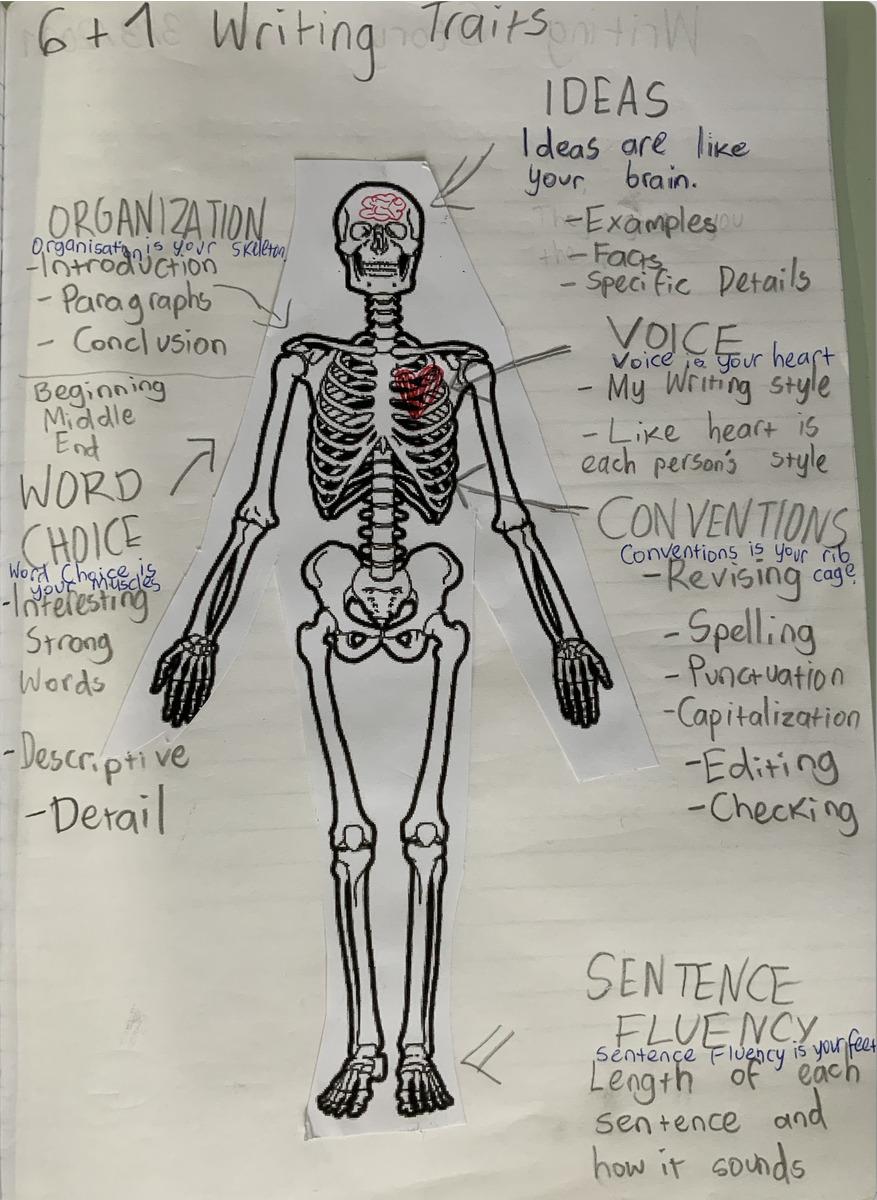 6+1 Writing Traits
IDEAS
Ideas are like
your brain.
- Examples
- Facts
- Specific Details
ORGANIZATION
Organisation is your skeleton
- Introduction
- Paragraphs
- Conclusion
Beginning
Middle
End
VOICE
Voice is your heart
- My Writing style
- Like heart is
each person's style
WORD
CHOICE
Word Choice is
your Muscles
- Interesting
Strong
Words
- Descriptive
- Detail
CONVENTIONS
Conventions is your rib
cage.
- Revising
- Spelling
- Punctuation
- Capitalization
- Editing
- Checking
SENTENCE
FLUENCY
Sentence Fluency is your feet
Length of each
sentence and
how it sounds